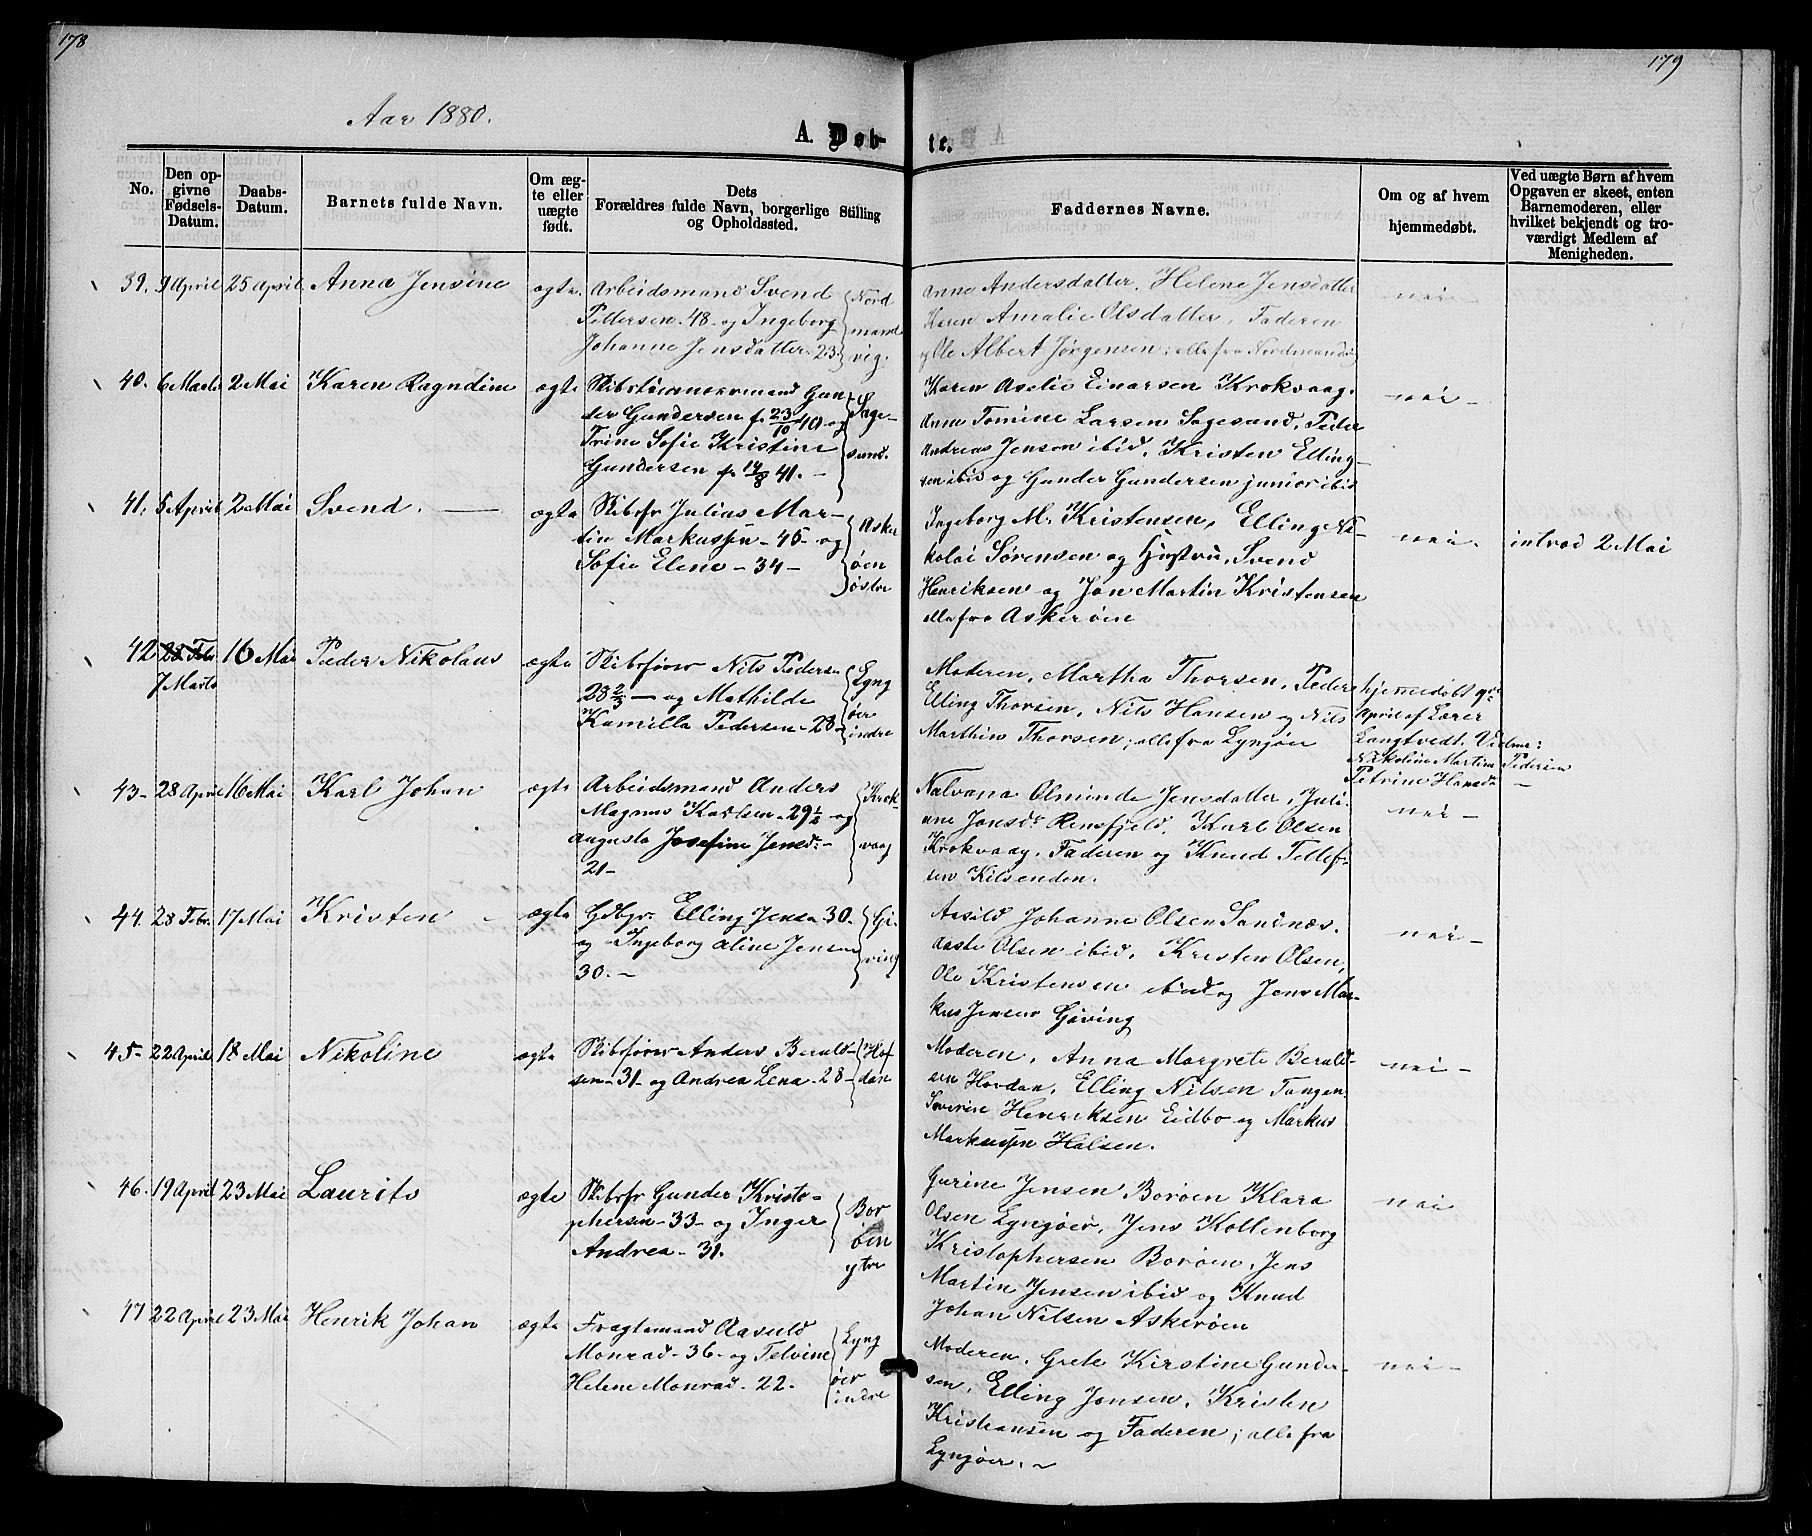 178
179
Aar 1880.
A. Døbte.
No.
Den opgivne Fødsels-Datum.
Daabs-Datum.
Barnets fulde Navn.
Om ægte eller uægte født.
Dets Forældres fulde Navn, borgerlige Stilling og Opholdssted.
Faddernes Navne.
Om og af hvem hjemmedøbt.
Ved uægte Børn af hvem Opgaven er skeet, enten Barnemoderen, eller hvilket bekjendt og troværdigt Medlem af Menigheden.
39. 9 April 25 April Anna Jensine ægte. Arbeidsmand Svend
Pettersen 48 - og Ingeborg
Johanne Jensdatter 23
Nord
mand
vig.
Anne Andersdatter, Helene Jensdatter
Karen Amalie Olsdatter, Faderen
og Ole Albert Jørgensen; alle fra Nordmandv
nei
40. 6 Marts 2 Mai Karen Ragndine ægte Skibstømmermand Gun-
der Gundersen f. 23/10 40 og
Trine Sofie Kristine
Gundersen f. 14/8 41. -
Sage-
sund.
Karen Aselie Einarsen Krokvaag.
Anne Tomine Larsen Sagesund, Peder
Andreas Jensen ibid, Kristen Elling-
sen ibid og Gunder Gundersen junior ibid
nei -
41. 5 April 2 Mai Svend. ægte Skibsfr Julius Mar-
tin Markussen - 45 - og
Sofie Elene - 34 -
Asker
øen
østre
Ingeborg M. Kristensen, Elling Ni-
kolai Sørensen og Hustru, Svend
Henriksen og Jon Martin Kristensen
alle fra Askerøen
nei.
introd 2 Mai
42 28 Febr 16 Mai Peder Nikolaus ægte Skibsfører Nils Pedersen
7 Marts
28 2/3 - og Mathilde
Kamilla Pedersen - 28 -
Lyng
øer
indre
Moderen, Martha Thorsen, Peder
Elling Thorsen, Nils Hansen og Nils
Marthin Thorsen; alle fra Lyngøer
hjemmedøbt 9de
April af Lærer
Langtvedt. Vidne:
Nikoline Martine Pedersen
Petrine Hansd -
43 - 28 April 16 Mai Karl Johan ægte Arbeidsmand Anders
Magnus Karlsen - 29 1/2 og
Augusta Josefine Jensd: -
21 -
Krok-
vaag
Nalvana Olminde Jensdatter, Juli-
ane Jonsdr Rensfjeld, Karl Olsen
Krokvaag, Faderen og Knud Tellef-
sen Kilsenden.
nei -
44. 28 Febr. 17 Mai Kristen - ægte Gdbgr. Elling Jensen 30.
og Ingeborg Aline Jensen
30. -
Gi-
ving
Aasild Johanne Olsen Sandnæs.
Aaste Olsen ibid, Kristen Olsen,
Ole Kristensen ibid og Jens Mar-
kus Jensen Giving
nei -
45 - 22 April 18 Mai Nikoline ægte Skibsfører Anders Berald-
sen - 31 - og Andrea Lena - 28 -
Hof-
dan
Moderen, Anna Margrete Berald-
sen Hovdan, Elling Nilsen Tangen.
Severine Henriksen Eidbo og Markus
Markussen Halsen.
nei -
46. 19 April 23 Mai Laurits ægte Skibsfr Gunder Kristo-
phersen - 33 - og Inger
Andrea - 31.
Bor
øen
ytre
Gurine Jensen Borøen Klara
Olsen Lyngøer, Jens Kollenborg
Kristophersen Borøen, Jens
Martin Jensen ibid og Knud
Johan Nilsen Askerøen
nei
47 22 April 23 Mai Henrik Johan ægte Fragtemand Aasuld
Monrad - 36 - og Telvine
Helene Monrad - 22.
Lyng
øer
indre
Moderen, Grete Kirstine Gunder-
sen, Elling Jensen, Kristen
Kristiansen og Faderen; alle fra
Lyngøer. -
nei -